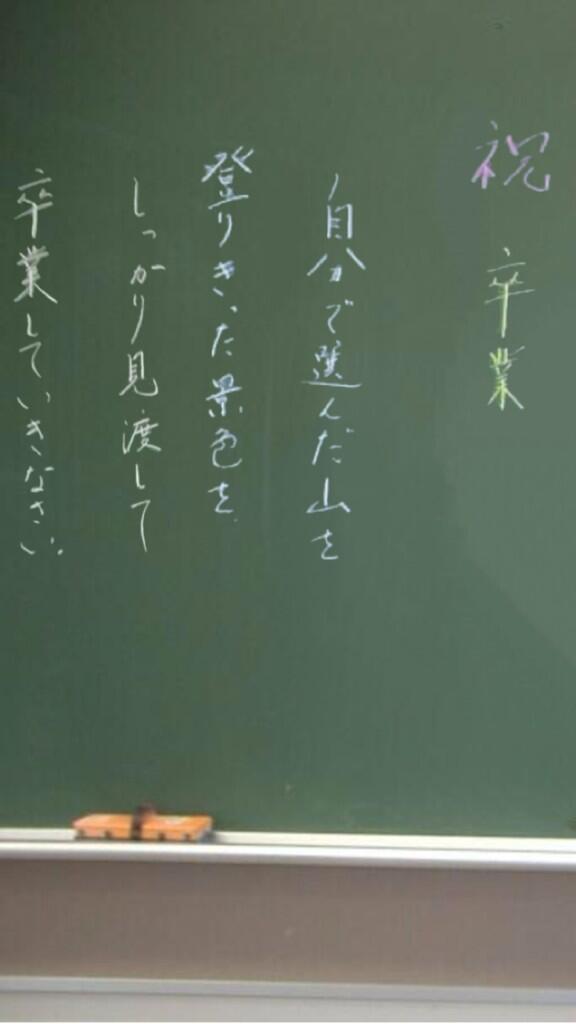 祝 卒業
自分で選んだ山を
登りきった景色を
しっかり見渡して
卒業していきなさい。